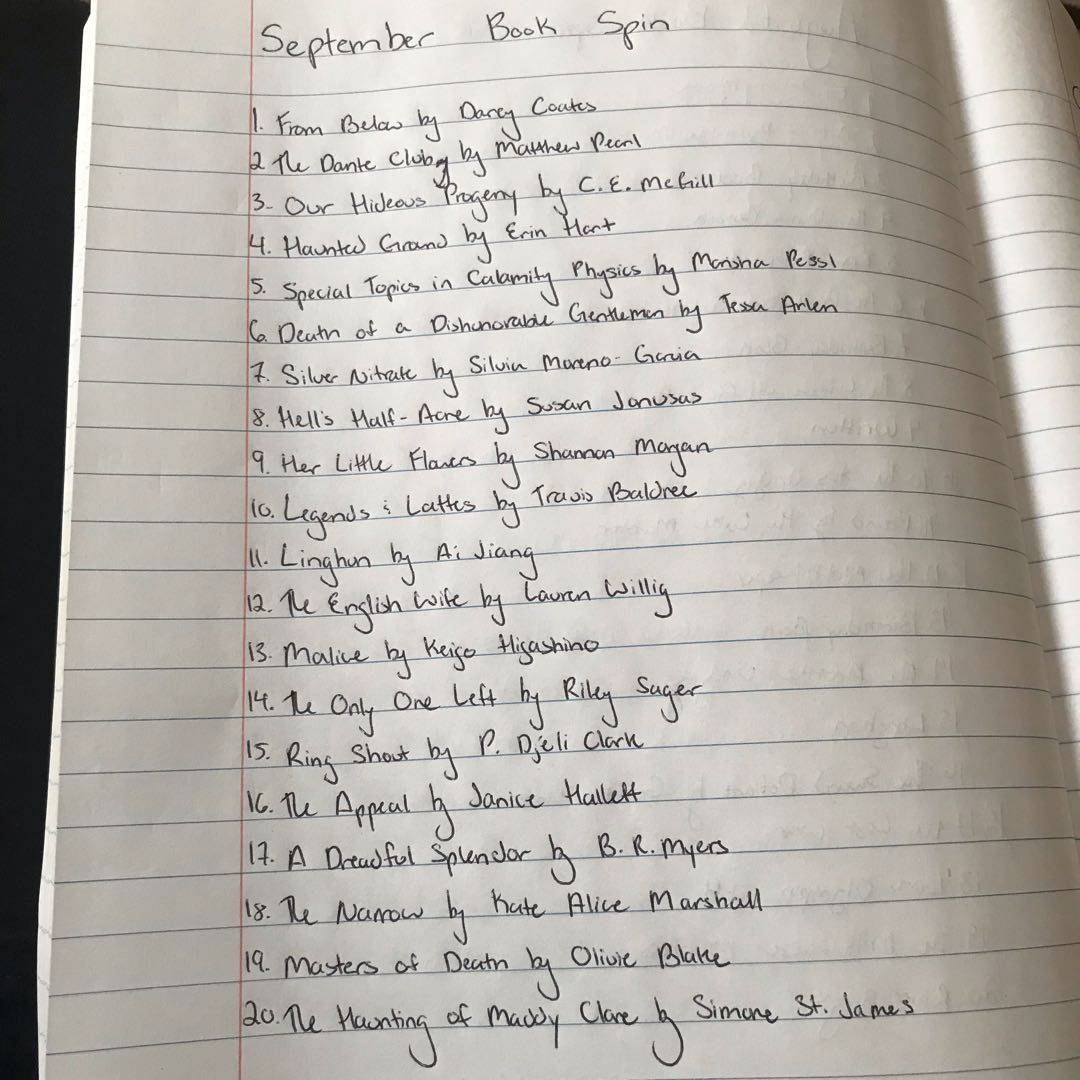 September Book Spin
1. From Below by Darcy Coates
2 The Dante Club by Matthew Pearl
3. Our Hideous Progeny by C.E. McGill
4. Haunted Ground by Erin Hart
5. Special Topics in Calamity Physics by Marisha Pessl
6. Death of a Dishonorable Gentleman by Tessa Arlen
7. Silver Nitrate by Silvia Moreno-Garcia
8. Hell's Half-Acre by Susan Jonusas
9. Her Little Flowers by Shannon Morgan
10. Legends & Lattes by Travis Baldree
11. Linghun by Ai Jiang
12. The English Wife by Lauren Willig
13. Malice by Keigo Higashino
14. The Only One Left by Riley Sager
15. Ring Shout by P. Djeli Clark
16. The Appeal by Janice Hallett
17. A Dreadful Splendor by B.R. Myers
18. The Narrow by Kate Alice Marshall
19. Masters of Death by Olivie Blake
20. The Haunting of Maddy Clare by Simone St. James